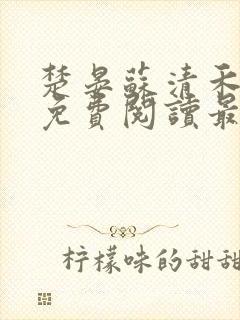 楚晏蘇清禾
免費閱讀最
柠檬味的甜甜